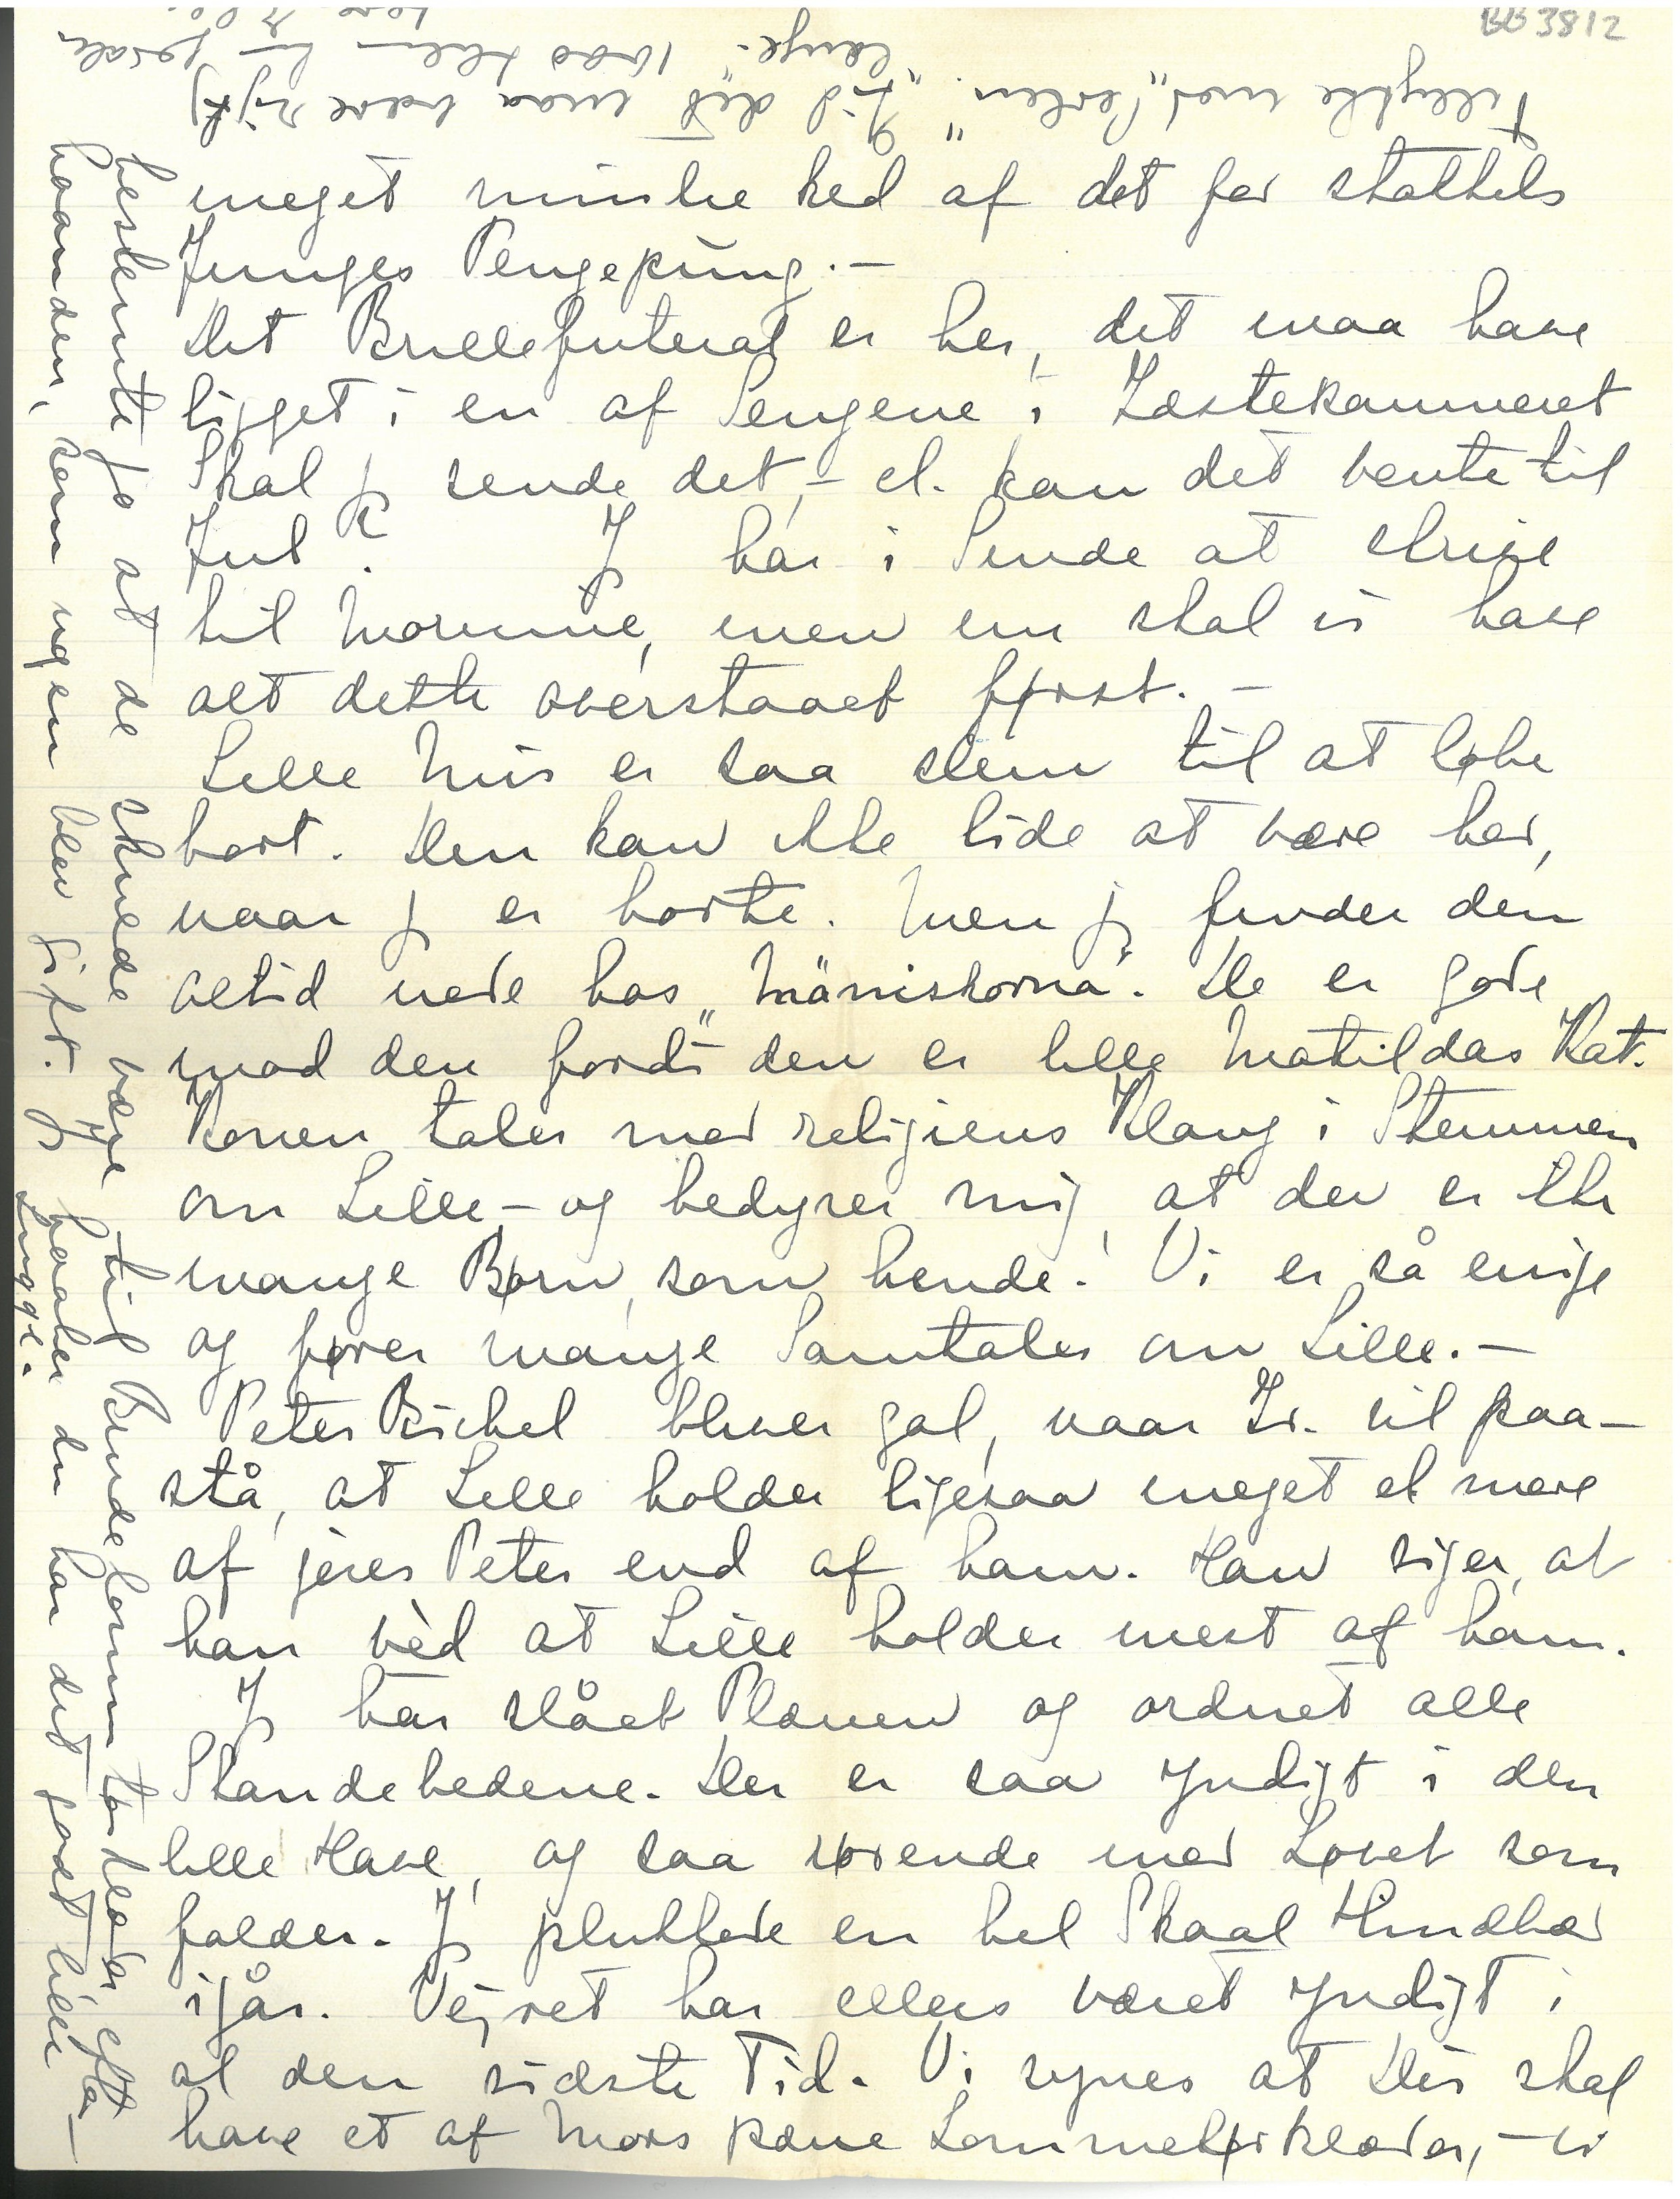 BB 3812
meget mindre ked af det for stakkels
Junges Pengepung. —
Det Brillefuteral er her, det maa have
ligget i en af Sengene i Gæstekammeret
Skal jg sende det, – el. kan det vente til
Jul? Jg har i Sinde at skrive
til Mornine, men nu skal vi have
alt dette overstaaet først. —
Lille Mis er saa slem til at løbe
bort. Den kan ikke lide at være her,
naar jg er borte. Men jg finder den
altid nede hos „Människorna". De er gode
mod den fordi den er lille Matildas Kat.
Konen taler med religiøs Klang i Stemmen
om Lille – og bedyrer mig at der er ikke
mange Børn, som hende! Vi er så enige
og fører mange Samtaler om Lille. —
Peter Bichel bliver gal, naar Gr. vil paa-
stå, at Lille holder ligesaa meget el mere
af jeres Peter end af ham. Han siger, at
han vèd at Lille holder mest af ham.
Jg har slået Plænen og ordnet alle
Staudebedene. Der er saa yndigt i den
lille Have, og saa rørende med Løvet som
falder. Jg plukkede en hel Skaal Hindbær
igår. Vejret har ellers været yndigt i
al den sidste Tid. Vi synes at Dis skal
have et af Mors pæne Lommetørklæder, – vi
bestemte jo at de skulde være til Bindelommetørklæder efter-
haanden, som ngen blev gift. Jg haaber du har det godt lille
Lugge.
Tillykke med „Perlen". Gid det maa være rigtig
længe.